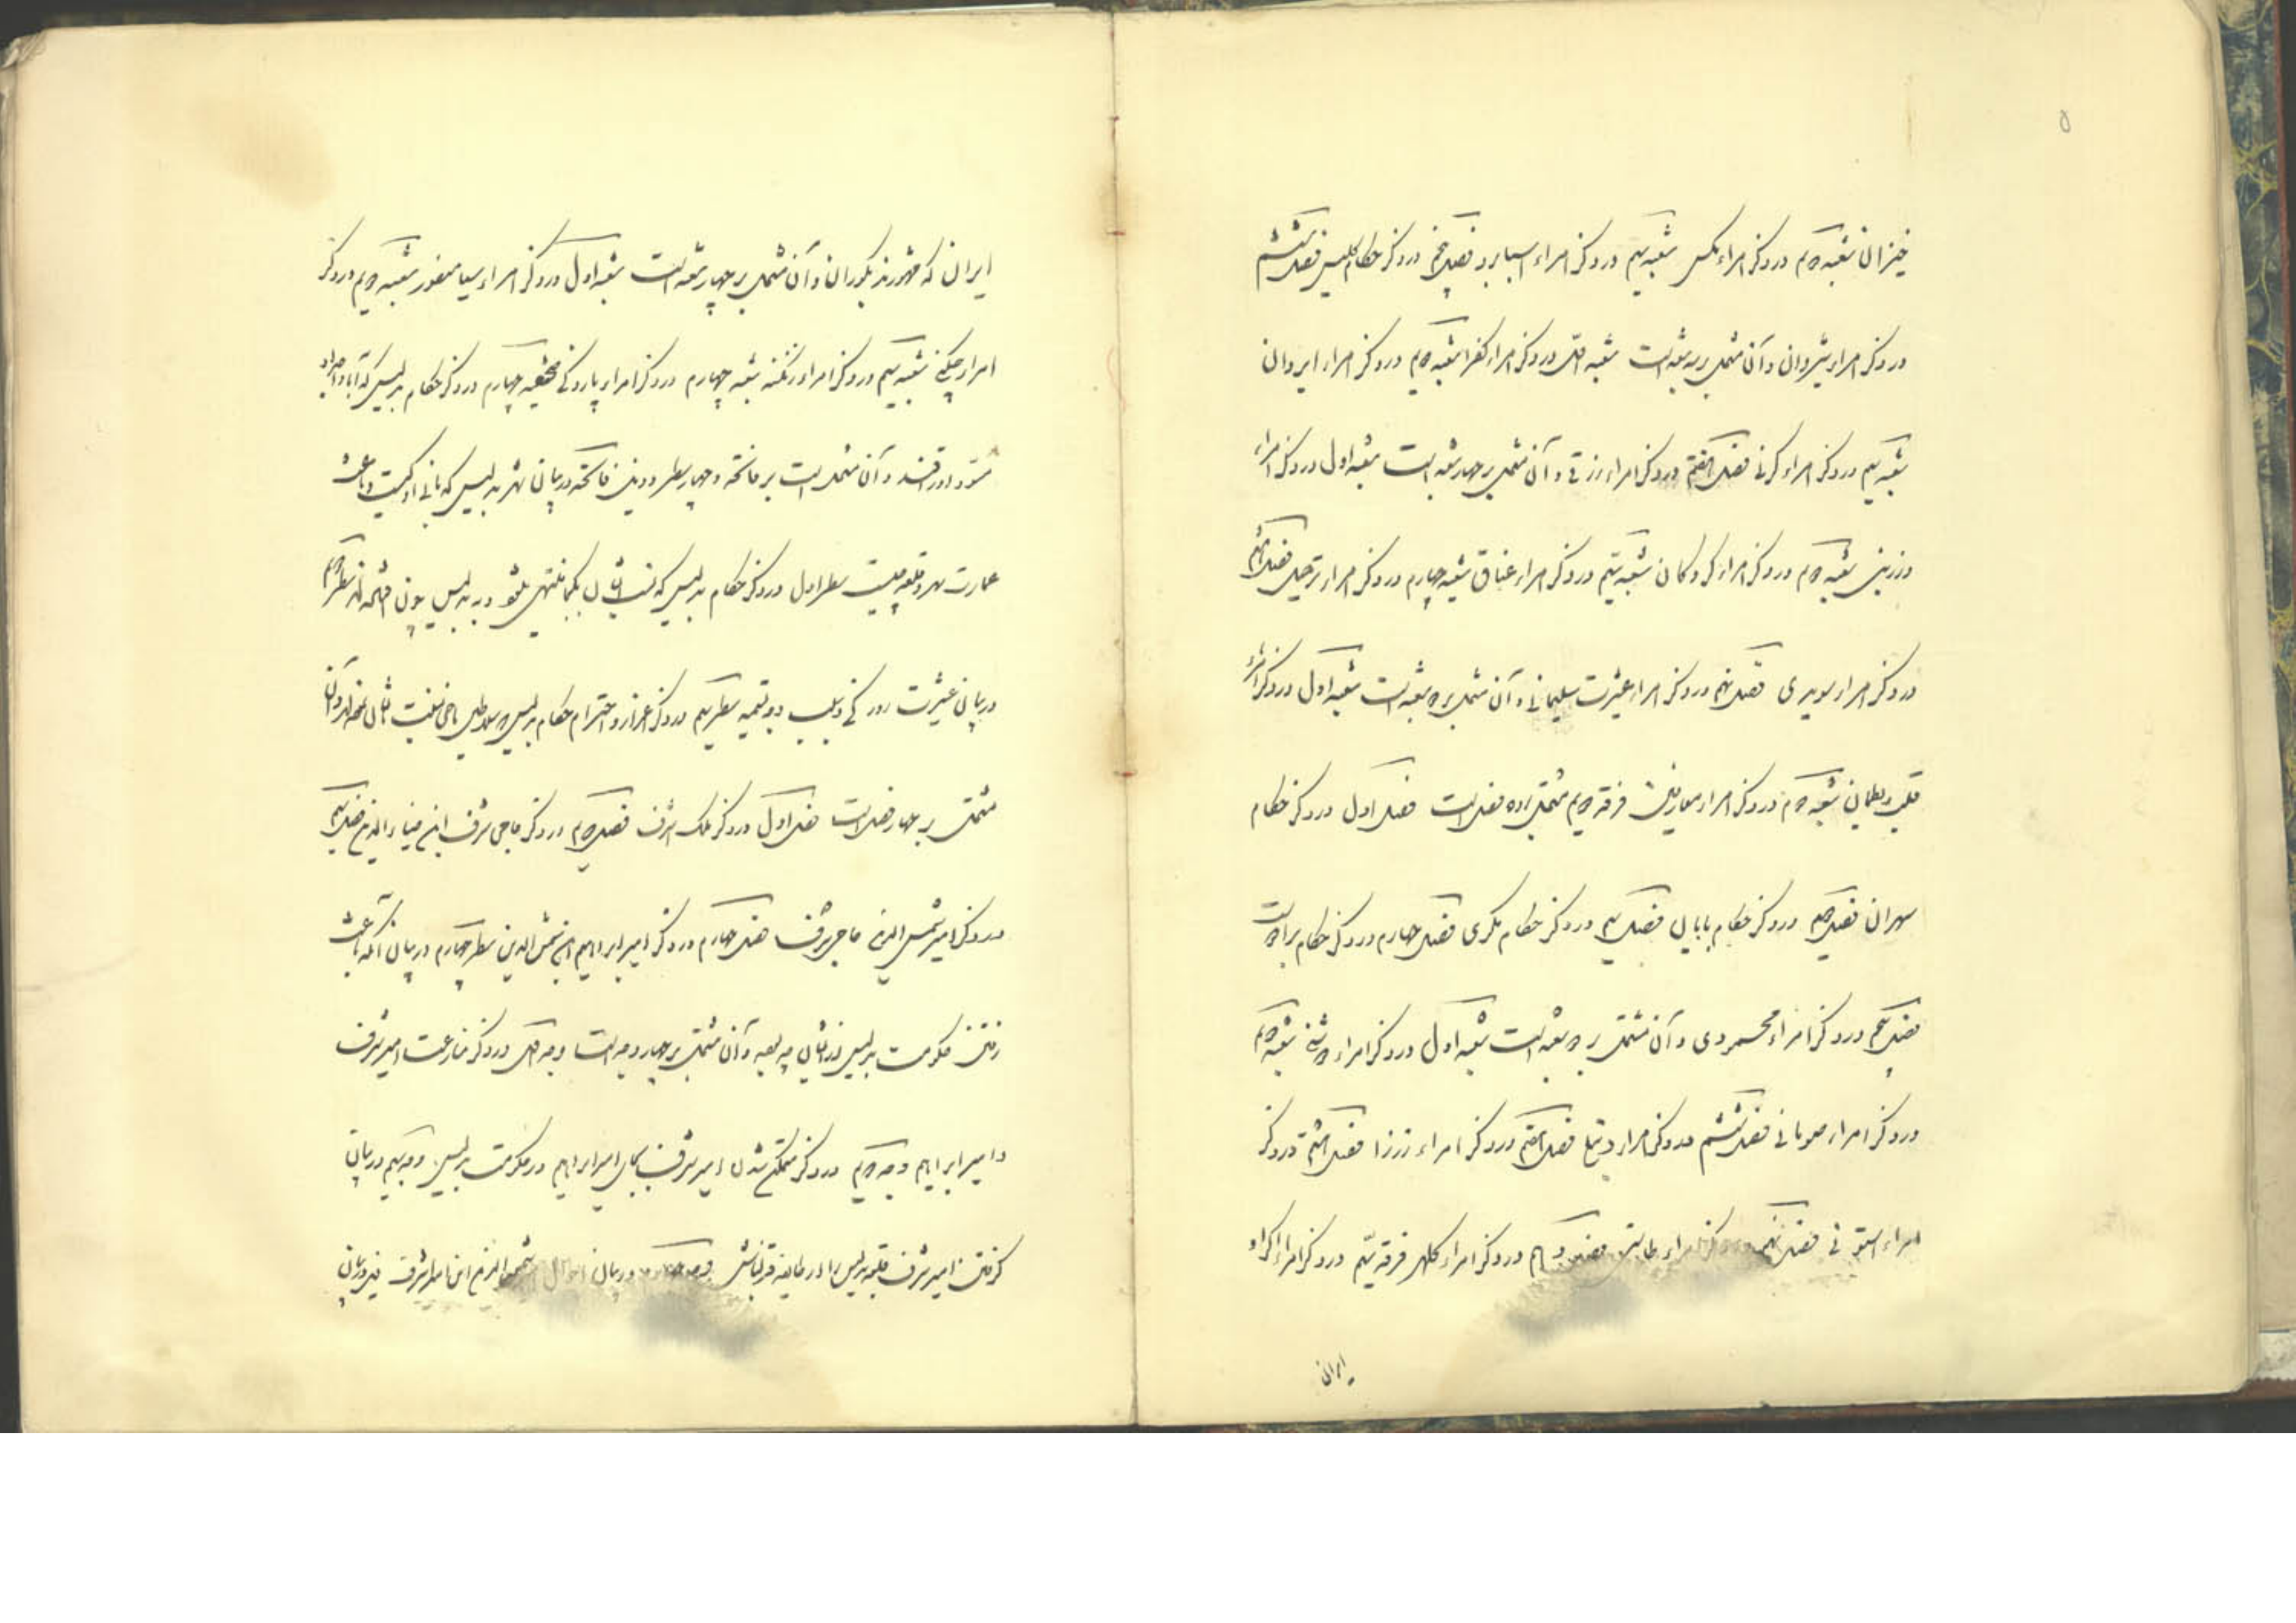 ۵
خیزان شعبه دویم در ذکر امراء مکس شعبه سیم در ذکر امراء اسبایرد فصل پنجم در ذکر حکام کلیس فصل ششم
در ذکر امراء شیروان و آن مشتمل بر سه شعبه است شعبه اول در ذکر امراء کفرا شعبه دویم در ذکر امراء ایروان
شعبه سیم در ذکر امراء کرنی فصل هفتم در ذکر امراء زرقی و آن مشتمل بر چهار شعبه است شعبه اول در ذکر امراء
درزینی شعبه دویم در ذکر امراء کردکان شعبه سیم در ذکر امراء عتاق شعبه چهارم در ذکر امراء ترجیل فصل هشتم
در ذکر امراء سویدی فصل نهم در ذکر امراء عشیرت سلیمانی و آن مشتمل بر دو شعبه است شعبه اول در ذکر امراء
قلب و بطمان شعبه دویم در ذکر امراء میافارقین فرقه دویم مشتمل بر ده فصل است فصل اول در ذکر حکام
سهران فصل دویم در ذکر حکام بابان فصل سیم در ذکر حکام مکری فصل چهارم در ذکر حکام برادوست
فصل پنجم در ذکر امراء محمودی و آن مشتمل بر دو شعبه است شعبه اول در ذکر امراء شعبه دویم
در ذکر امراء صومانی فصل ششم در ذکر امراء فصل هفتم در ذکر امراء زرزا فصل هشتم در ذکر
امراء استونی فصل نهم در ذکر امراء طاسنی فصل دهم در ذکر امراء کلهر فرقه سیم در ذکر امراء اکراد
ایران
ایران که مشهورند بکوران و آن مشتمل بر چهار شعبه است شعبه اول در ذکر امراء سیاه منصور شعبه دویم در ذکر
امراء چکنی شعبه سیم در ذکر امراء زنکنه شعبه چهارم در ذکر امراء پازوکی صحیفه چهارم در ذکر حکام بدلیس که آبا و اجداد
مسود اوراقند و آن مشتمل است بر فاتحه و چهار سطر و ذیل فاتحه در بیان شهر بدلیس که بانی او کیست و باعث
عمارت شهر و قلعه چیست سطر اول در ذکر حکام بدلیس که نسب ایشان بکجا منتهی میشود و به بدلیس چون افتاده‌اند سطر دویم
در بیان عشیرت روزکی و سبب و وجه تسمیه سطر سیم در ذکر اعزاز و احترام حکام بدلیس سلاطین ماضی نسبت بایشان نموده‌اند و آن
مشتمل بر چهار فصل است فصل اول در ذکر ملک اشرف فصل دویم در ذکر حاجی شرف ابن ضیاء الدین فصل سیم
در ذکر امیر شمس الدین حاجی شرف فصل چهارم در ذکر امیر ابراهیم ابن شمس الدین سطر چهارم در بیان آنکه باعث
رفتن حکومت بدلیس از ایشان چه بود و آن مشتمل بر چهار وجه است وجه اول در ذکر منازعت امیر شرف
و امیر ابراهیم وجه دویم در ذکر متمکن شدن امیر شرف بجای امیر ابراهیم در حکومت بدلیس وجه سیم در بیان
گرفتن امیر شرف قلعه بدلیس را از طایفه قزلباش وجه چهارم در بیان احوال شمس الدین ابن امیر شرف ذیل در بیان